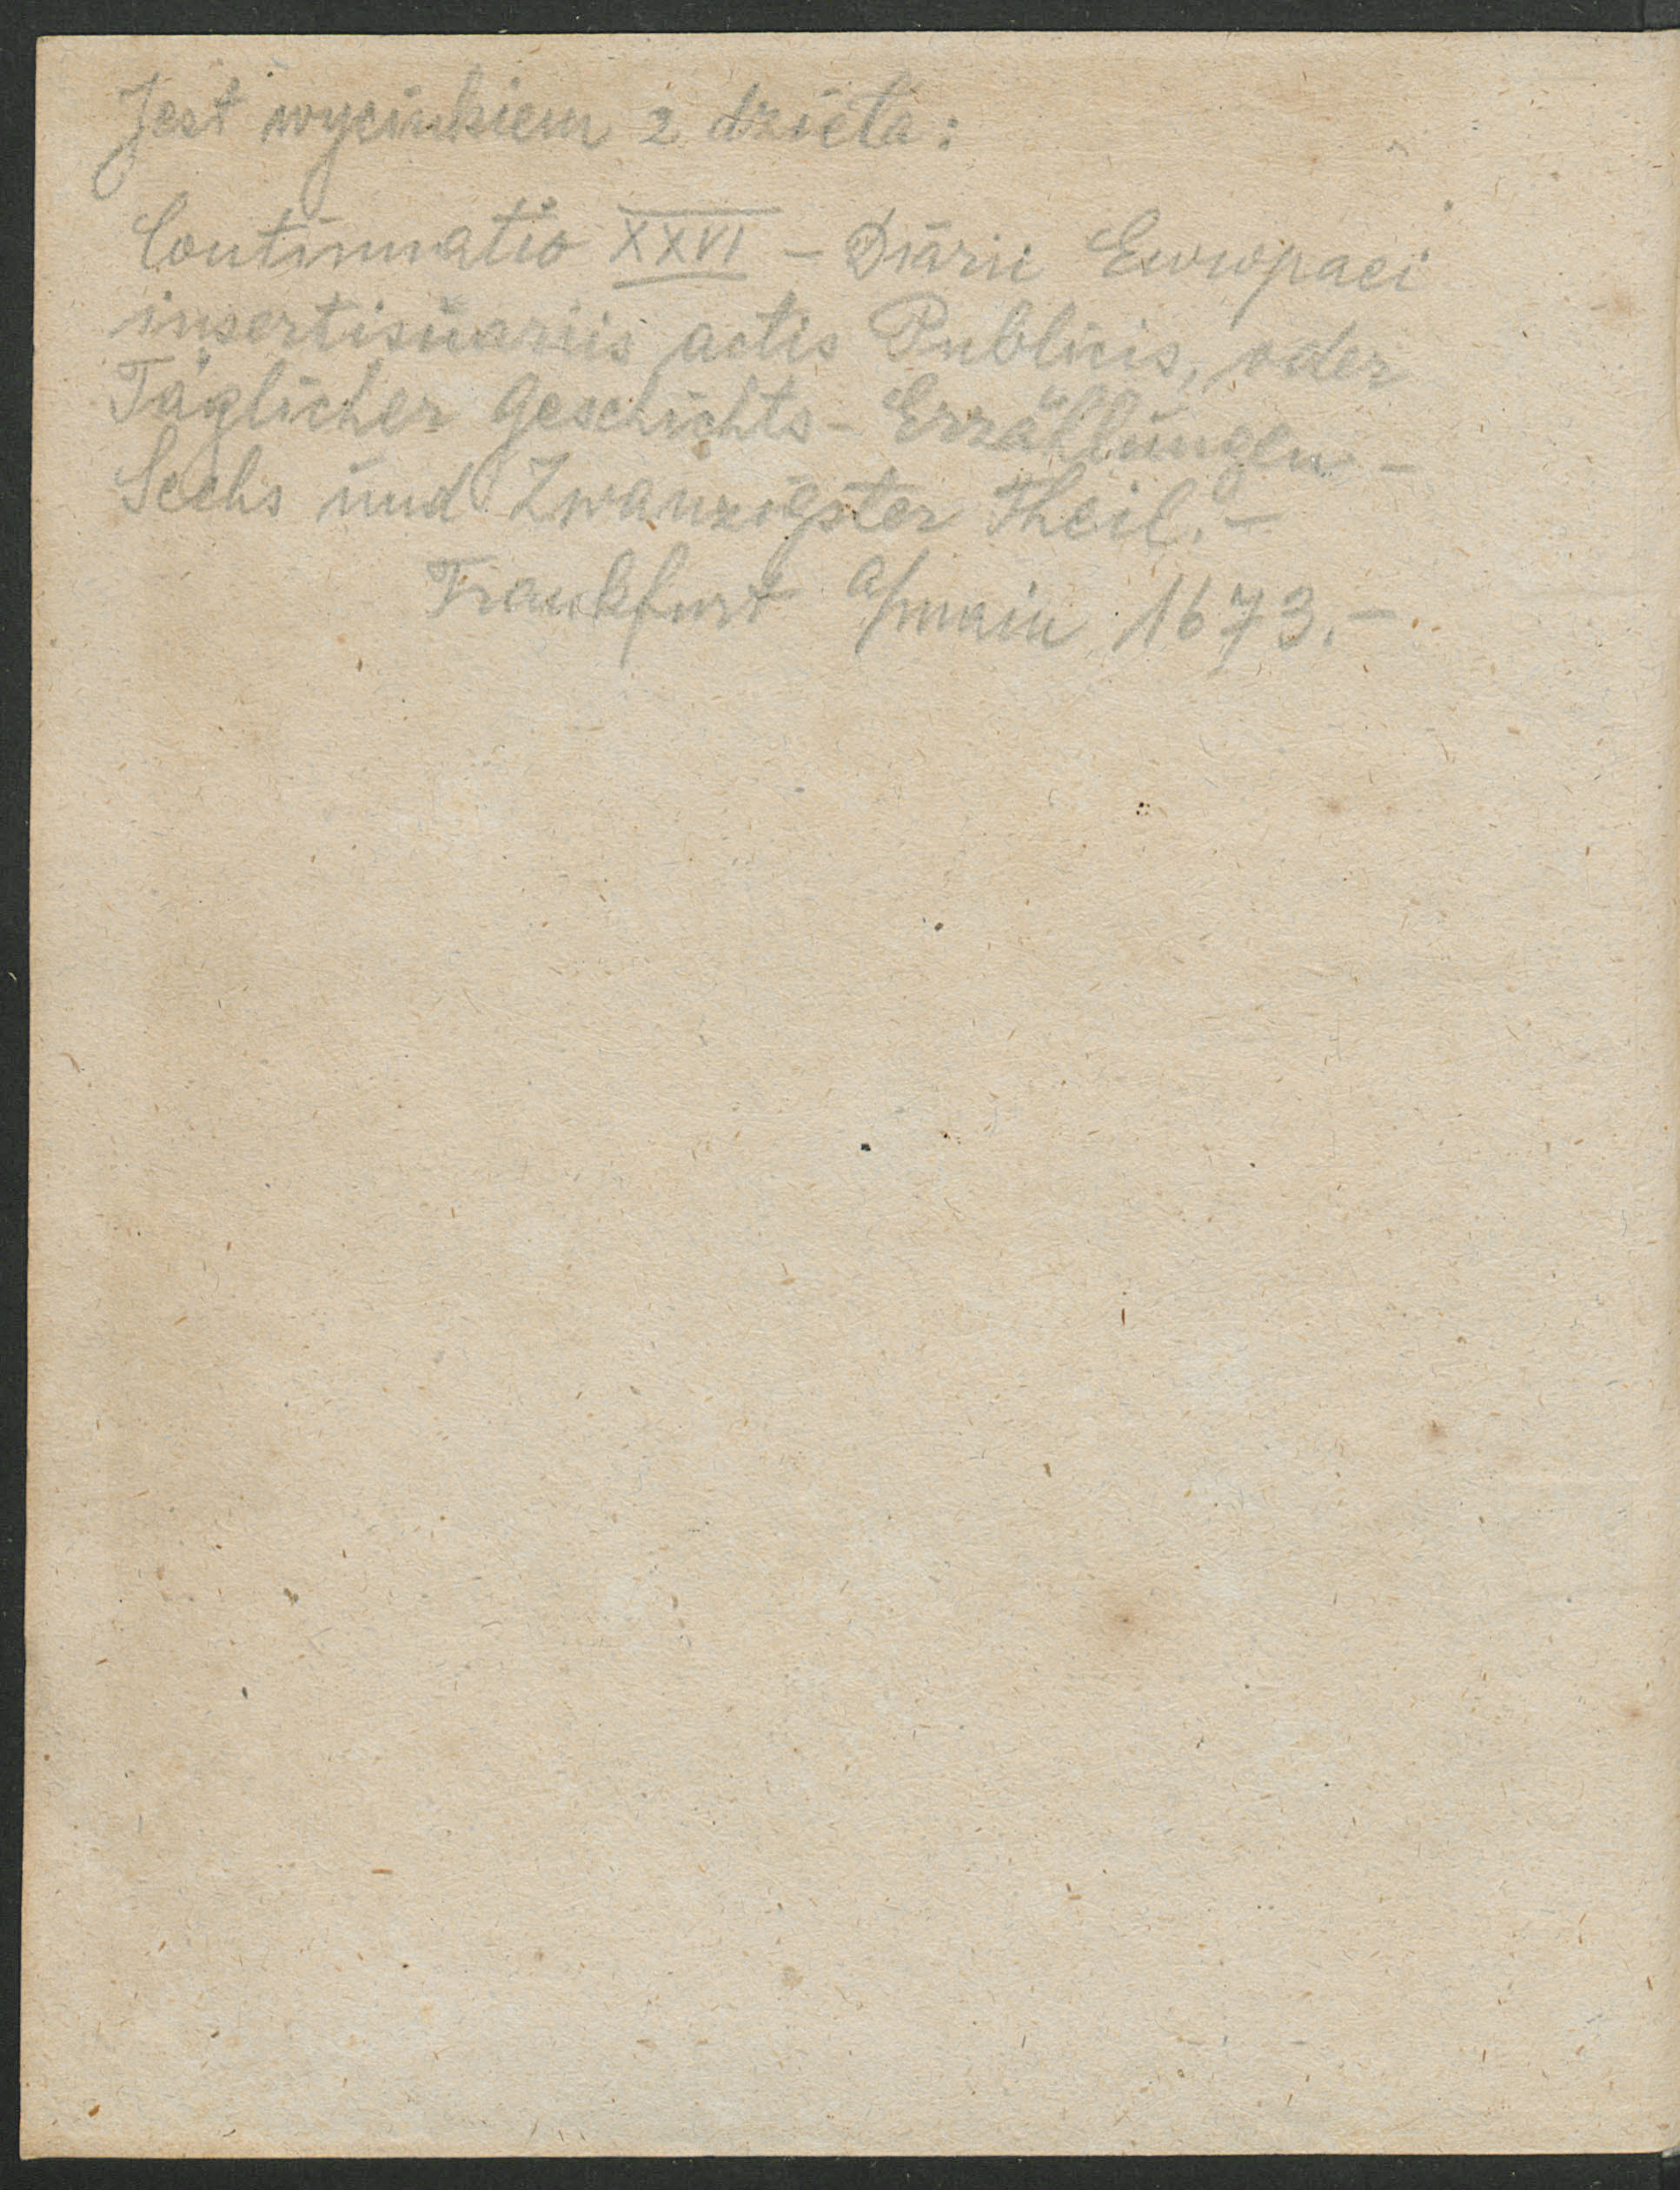 Jest wycinkiem z dzieła:
Continuatio XXVI – Diarii Europaei
insertis variis actis Publicis, oder
Täglicher Geschichts- Erzällungen –
Sechs und Zwanzigster Theil. –
Frankfurt a/main 1673. –